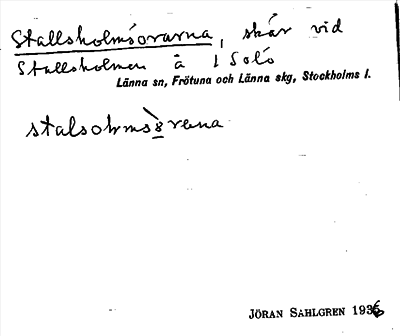 Stallsholmsörarna, skär vid
Stallsholmen å 1 Solö
Länna sn, Frötuna och Länna skg, Stockholms l.
JÖRAN SAHLGREN 1936